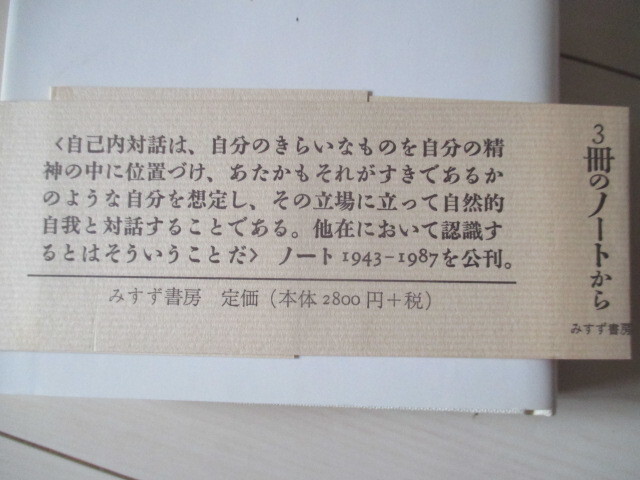 〈自己内対話は、自分のきらいなものを自分の精
神の中に位置づけ、あたかもそれがすきであるか
のような自分を想定し、その立場に立って自然的
自我と対話することである。他在において認識す
るとはそういうことだ〉 ノート1943-1987を公刊。
みすず書房 定価（本体2800円＋税）
3冊のノートから
みすず書房